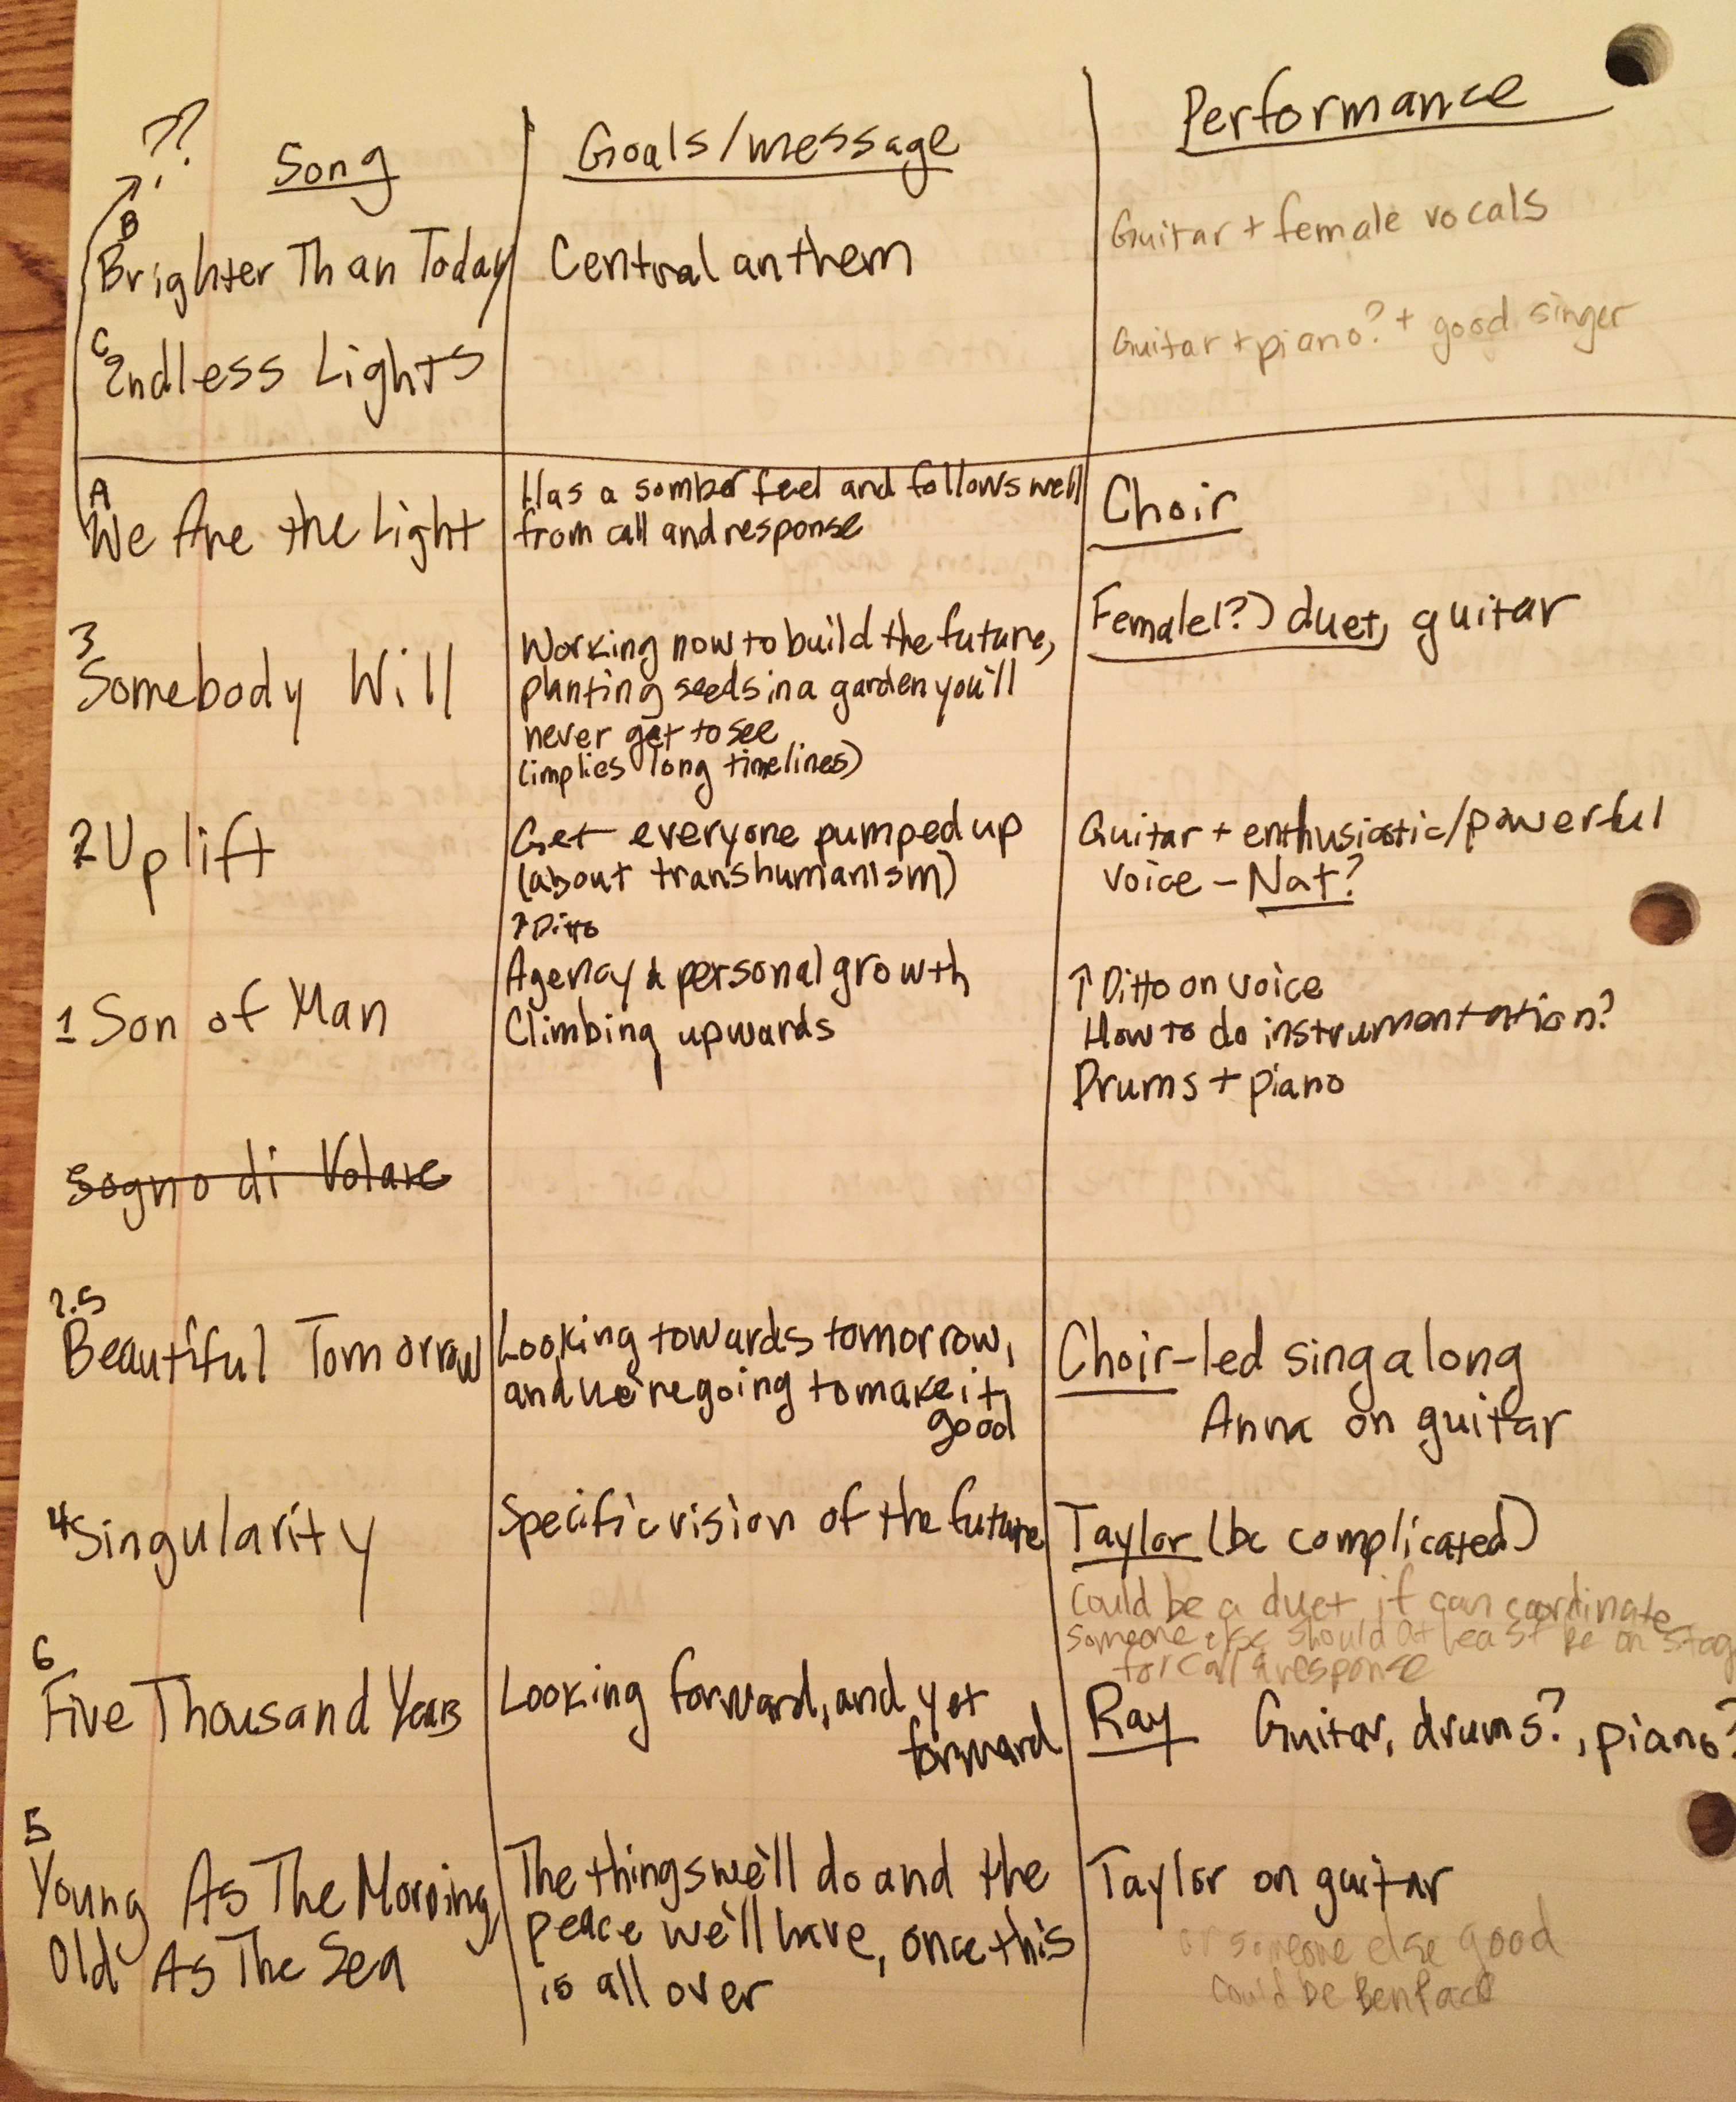 ??
Song
Goals/message
Performance
B
Brighter Than Today
Central anthem
Guitar + female vocals
C
Endless Lights
Guitar + piano? + good singer
A
We Are the Light
Has a somber feel and follows well
from call and response
Choir
3
Somebody Will
Working now to build the future,
planting seeds in a garden you'll
never get to see
(implies long timelines)
Female(?) duet, guitar
2 Uplift
Get everyone pumped up
(about transhumanism)
Guitar + enthusiastic/powerful
voice – Nat?
1 Son of Man
↑ Ditto
Agency & personal growth
Climbing upwards
↑ Ditto on voice
How to do instrumentation?
Drums + piano
Sogno di Volare
Beautiful Tomorrow
Looking towards tomorrow,
and we're going to make it
good
Choir-led singalong
Anna on guitar
4 Singularity
Specific vision of the future
Taylor (bc complicated)
Could be a duet if can coordinate
Someone else should at least be on stag
for call & response
6
Five Thousand Years
Looking forward, and yet
forward
Ray Guitar, drums?, piano?
5
Young As The Morning
Old As The Sea
The things we'll do and the
peace we'll have, once this
is all over
Taylor on guitar
or someone else good
could be Ben Pace